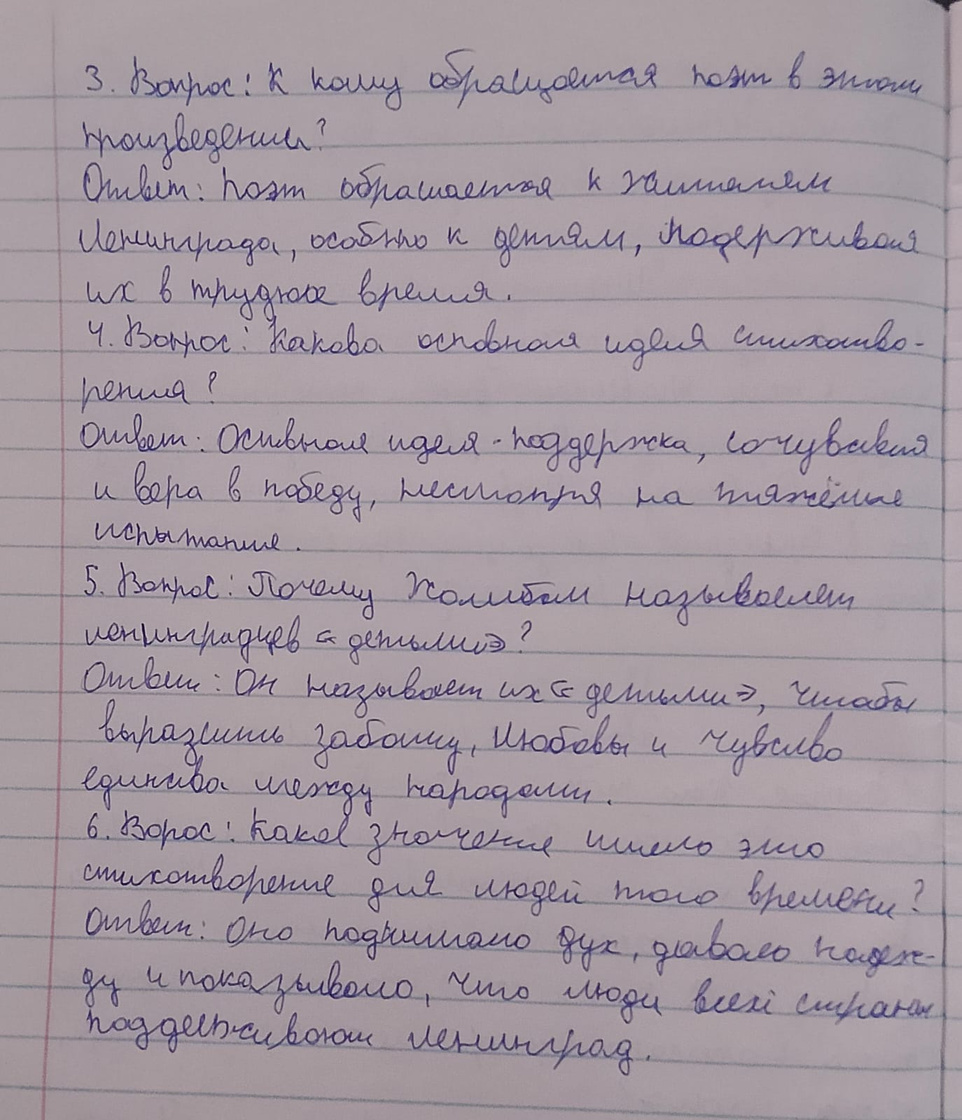 3. Вопрос: К кому обращается поэт в этом
произведении?
Ответ: Поэт обращается к жителям
Ленинграда, особенно к детям, подерживая
их в трудное время.
4. Вопрос: Какова основная идея стихотво-
рения?
Ответ: Основная идея - поддержка, сочувствия
и вера в победу, несмотря на тяжёлые
испытание.
5. Вопрос: Почему Жамбыл называет
ленинградцев «детьми»?
Ответ: Он называет их «детьми», чтобы
выразить заботу, любовь и чувство
единства между народами.
6. Ворос: Какое значение имело это
стихотворение для людей того времени?
Ответ: Оно поднимало дух, давало надеж-
ду и показывало, что люди всей страны
поддерживают Ленинград.